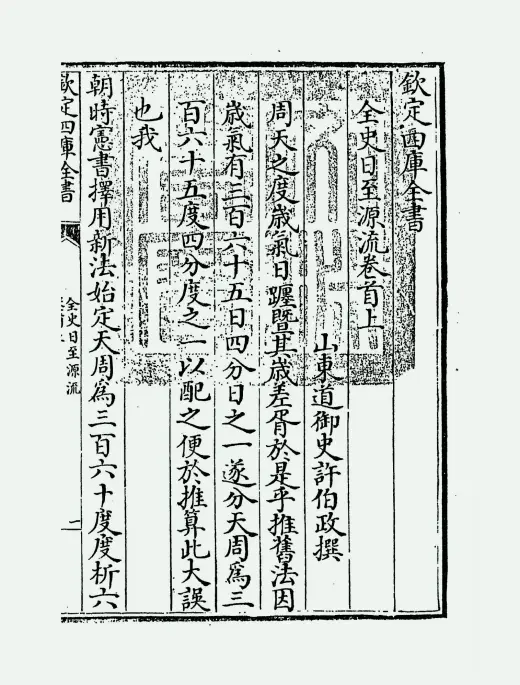 欽定四庫全書
全史日至源流卷首上
山東道御史許伯政撰
周天之度歲氣日躔暨其歲差胥於是乎推舊法因
歲氣有三百六十五日四分日之一遂分天周爲三
百六十五度四分度之一以配之便於推算此大誤
也我
朝時憲書擇用新法始定天周爲三百六十度度析六
欽定四庫全書
全史日至源流
一